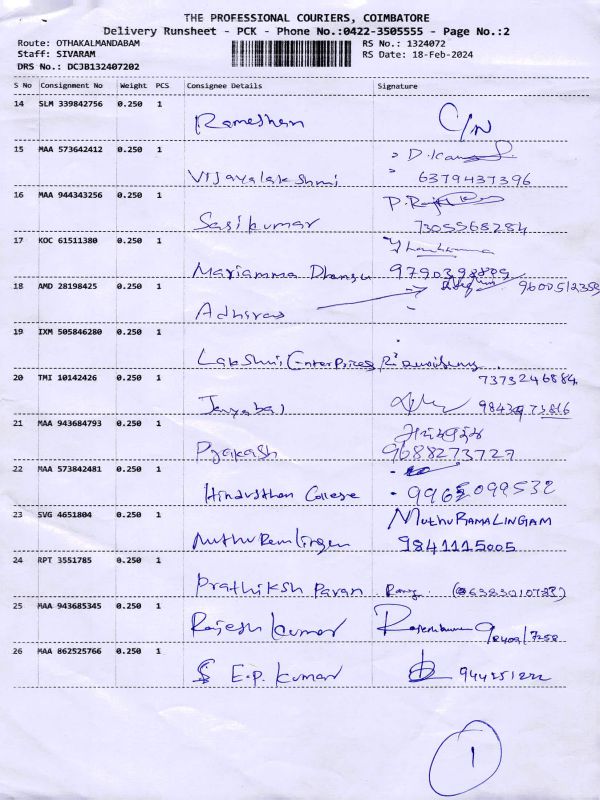 THE PROFESSIONAL COURIERS, COIMBATORE
Delivery Runsheet - PCK - Phone No.:0422-3505555 - Page No.:2
Route: OTHAKALMANDABAM RS No.: 1324072
Staff: SIVARAM RS Date: 18-Feb-2024
DRS No.: DCJB132407202
S No Consignment No Weight PCS Consignee Details Signature
14 SLM 339842756 0.250 1
Rameshan C/N
15 MAA 573642412 0.250 1 D.
Vijayalakshmi 6379437396
16 MAA 944343256 0.250 1
Sasikumar 7305568284
17 KOC 61511380 0.250 1
Mariamma Dhansu 9790398889
18 AMD 28198425 0.250 1 9600512359
Adhirao
19 IXM 505846280 0.250 1
Lakshmi Enterprises
7373246884
20 TMI 10142426 0.250 1
Jayabal
21 MAA 943684793 0.250 1
Pyakash 9688273727
22 MAA 573842481 0.250 1
Hindusthan College 9965099532
23 SVG 4651804 0.250 1 MUTHURAMALINGAM
9841115005
24 RPT 3551785 0.250 1
Prathiksh Pavan
25 MAA 943685345 0.250 1
Rajesh Kumar
26 MAA 862525766 0.250 1
E.P. Kumar 944251222
1